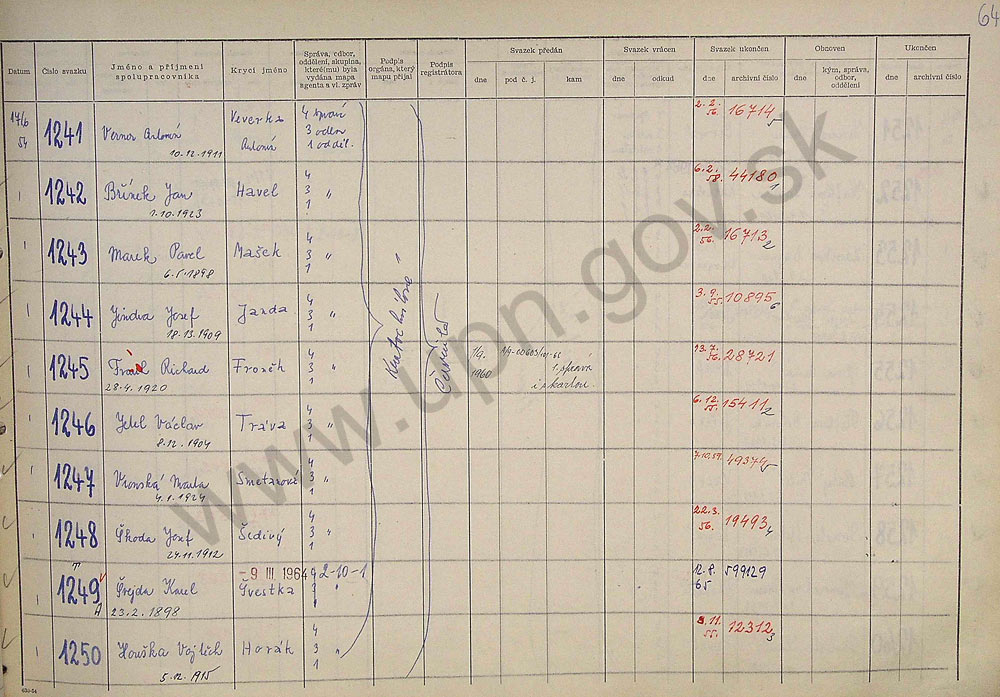 64
Datum
Číslo svazku
Jméno a příjmení
spolupracovníka
Krycí jméno
Správa, odbor,
oddělení, skupina,
které(mu) byla
vydána mapa
agenta a vl. zpráv
Podpis
orgána, který
mapu přijal
Podpis
registrátora
Svazek předán
dne
pod č. j.
kam
Svazek vrácen
dne
odkud
Svazek ukončen
dne
archivní číslo
Obnoven
dne
kým, správa,
odbor,
oddělení
Ukončen
dne
archivní číslo
17/6
54
1241
Verner Antonín
10.12.1911
Veverka
Antonín
4 správ
3 odbor
1 odděl.
2.2.
56.
16714
5
1242
Břínek Jan
1.10.1923
Havel
4
3 "
1
6.2.
58.
44180
1
1243
Marek Pavel
6.5.1898
Mašek
4
3 "
1
2.2.
56.
16713
2
1244
Jindra Josef
Janda
4
3 "
1
3.9.
55.
10895
6
1245
Richard
28.4.1920
Froněk
4
3 "
1
1/9.
1960
1. správa
i s kartou.
28721
1246
Václav
8.12.1904
Tráva
4
3 "
1
6.12.
55.
15411
2
1247
Vronská Marta
4.1.1924
Smetanová
4
3 "
1
7.10.59.
49374
5
1248
Škoda Josef
24.11.1912
Šedivý
4
3 "
1
22.3.
56.
19493
4
1249
A
Šrejda Karel
23.2.1898
- 9 III 1964
Švestka
2-10-1
12.8.
65
599129
1250
Houška Vojtěch
5.12.1915
Horák
4
3 "
1
3.11.
55.
12312
3
www.upn.gov.sk